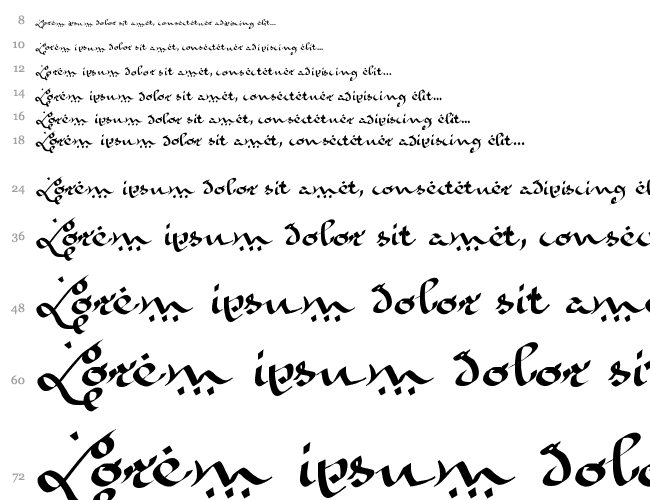 8 Lorem ipsum dolor sit amet, consectetuer adipiscing elit...
10 Lorem ipsum dolor sit amet, consectetuer adipiscing elit...
12 Lorem ipsum dolor sit amet, consectetuer adipiscing elit...
14 Lorem ipsum dolor sit amet, consectetuer adipiscing elit...
16 Lorem ipsum dolor sit amet, consectetuer adipiscing elit...
18 Lorem ipsum dolor sit amet, consectetuer adipiscing elit...
24 Lorem ipsum dolor sit amet, consectetuer adipiscing el
36 Lorem ipsum dolor sit amet, consec
48 Lorem ipsum dolor sit am
60 Lorem ipsum dolor si
72 Lorem ipsum dolo